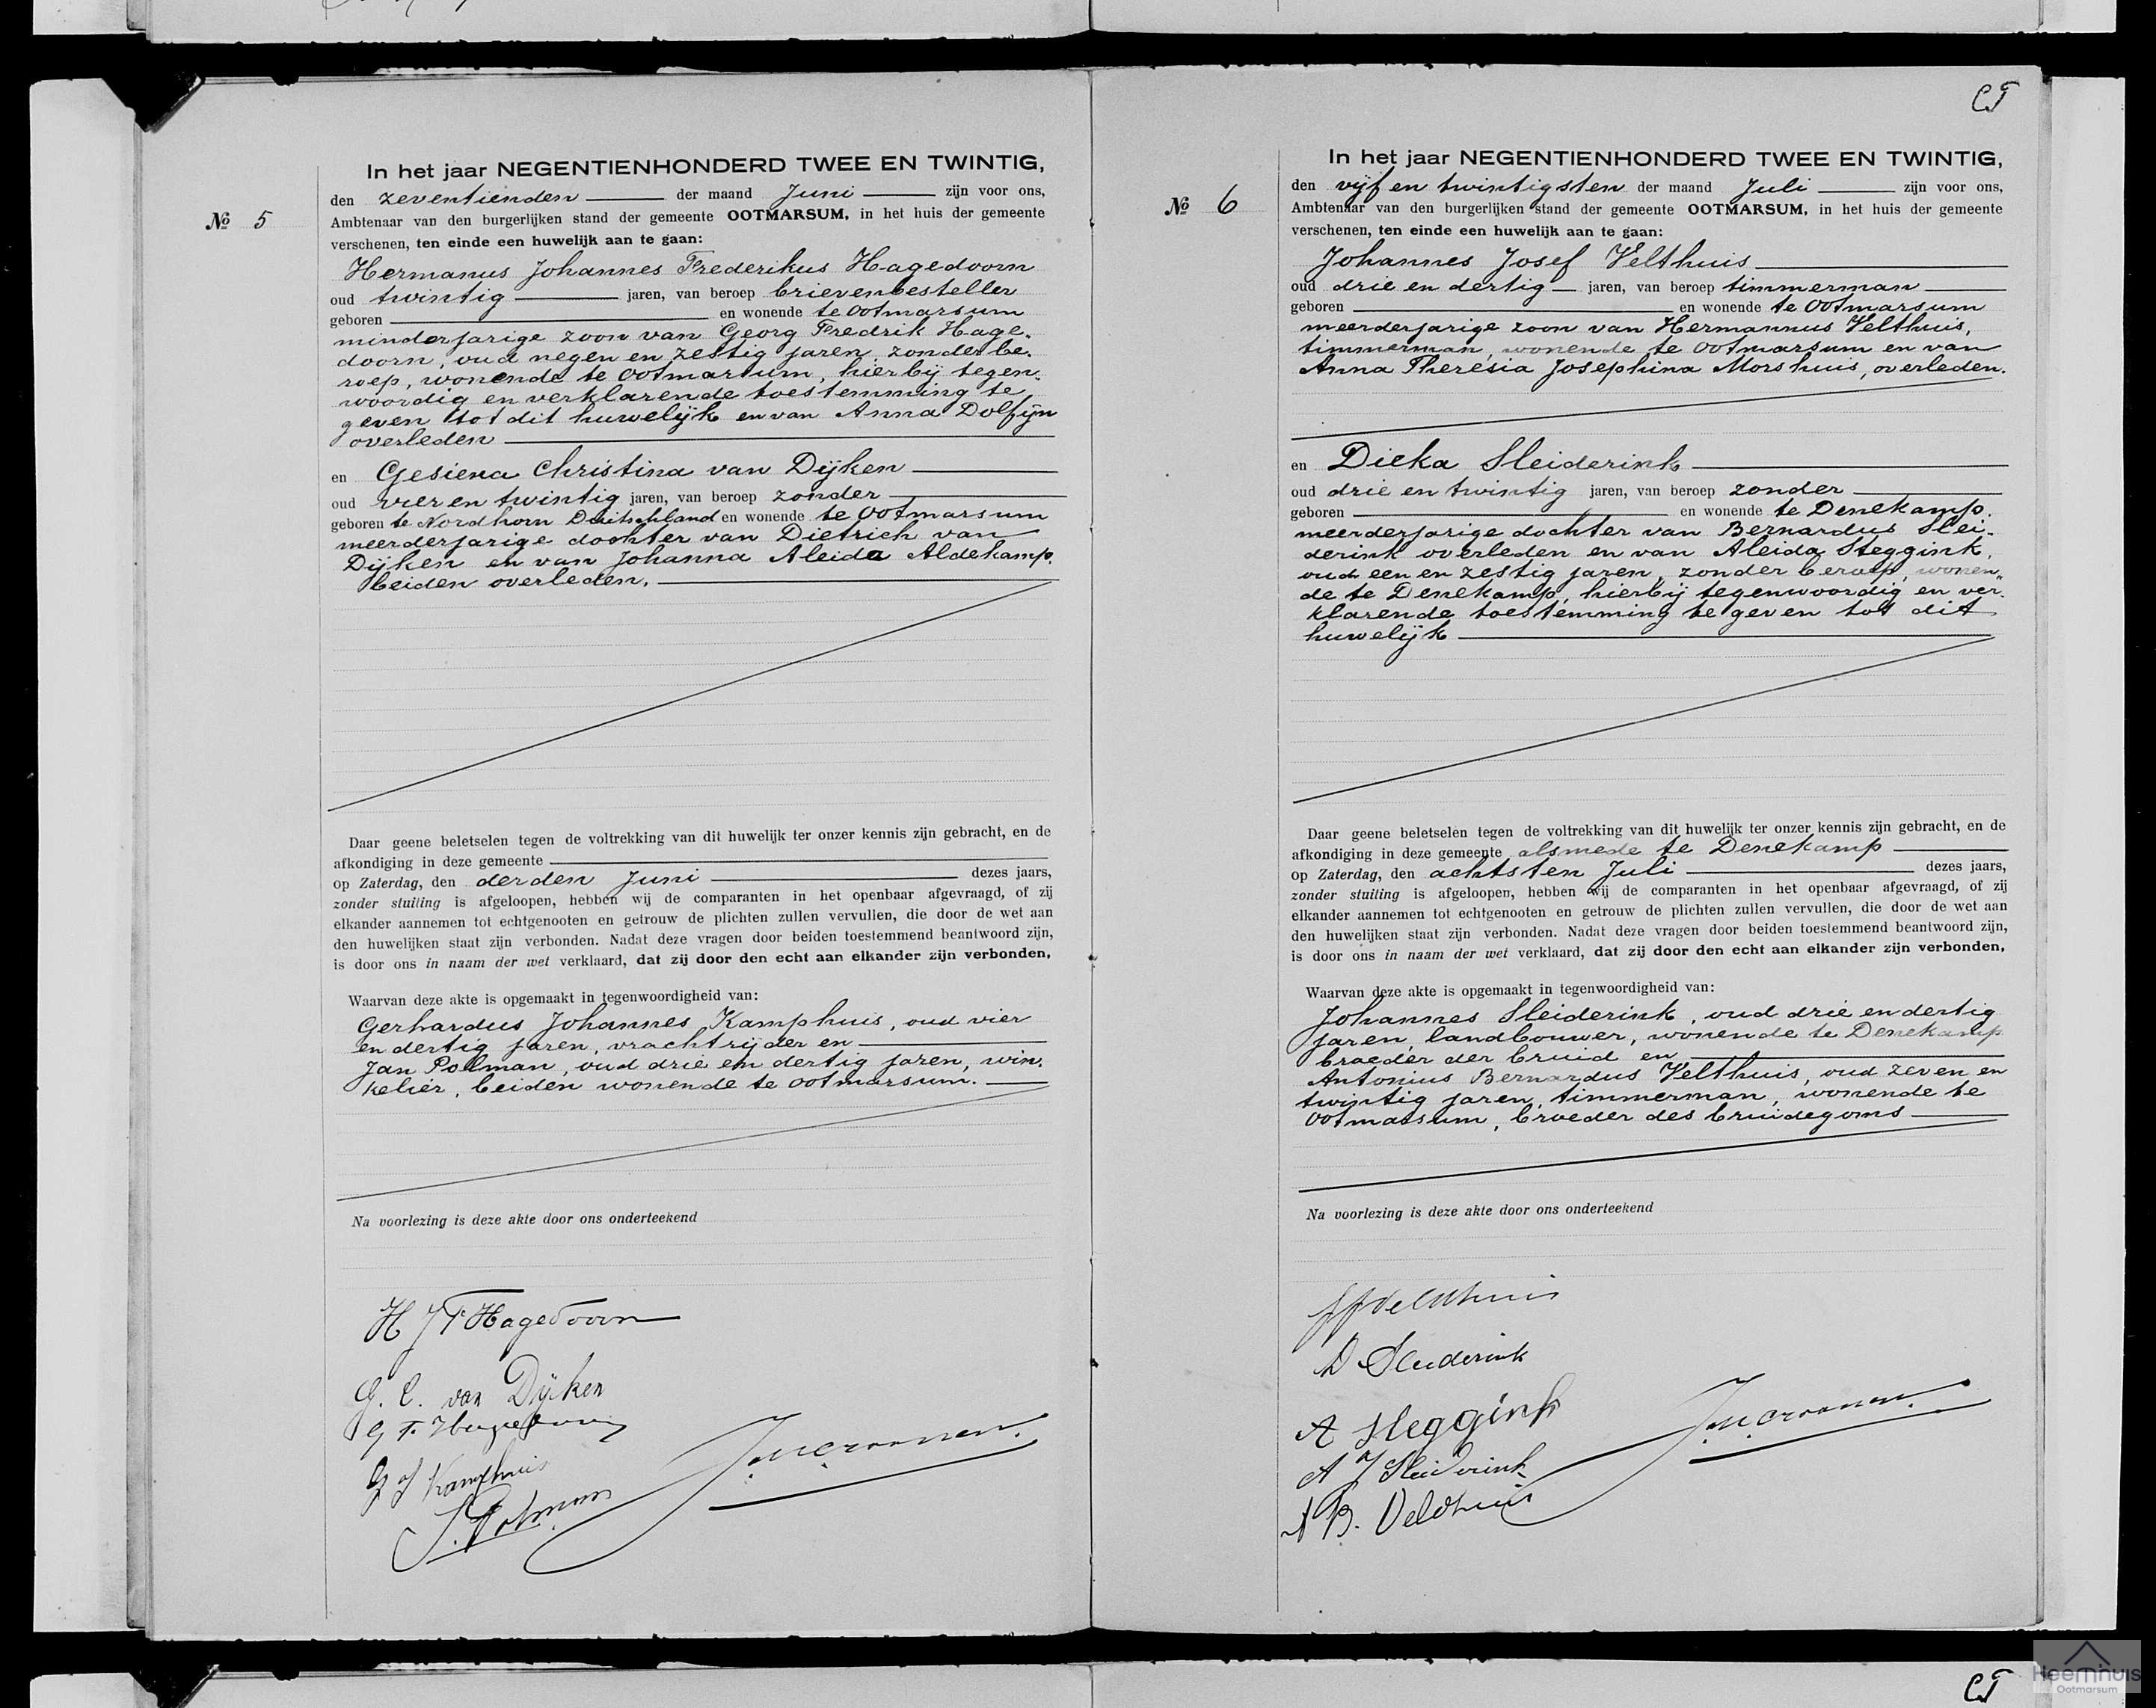 In het jaar NEGENTIENHONDERD TWEE EN TWINTIG,
den zeventienden der maand Juni zijn voor ons,
Nº 5
Ambtenaar van den burgerlijken stand der gemeente OOTMARSUM, in het huis der gemeente
verschenen, ten einde een huwelijk aan te gaan:
Hermanus Johannes Frederikus Hagedoorn
oud twintig jaren, van beroep brievenbesteller
geboren en wonende te Ootmarsum
minderjarige zoon van Georg Fredrik Hage-
doorn, oud negen en zestig jaren, zonder be-
roep, wonende te Ootmarsum, hierbij tegen-
woordig en verklarende toestemming te
geven tot dit huwelijk en van Anna Dolfijn
overleden
en Gesiena Christina van Dijken
oud vier en twintig jaren, van beroep zonder
geboren te Nordhorn Duitschland en wonende te Ootmarsum
meerderjarige dochter van Dietrich van
Dijken en van Johanna Aleida Aldekamp.
beiden overleden.
Daar geene beletselen tegen de voltrekking van dit huwelijk ter onzer kennis zijn gebracht, en de
afkondiging in deze gemeente
op Zaterdag, den derden Juni dezes jaars,
zonder stuiting is afgeloopen, hebben wij de comparanten in het openbaar afgevraagd, of zij
elkander aannemen tot echtgenooten en getrouw de plichten zullen vervullen, die door de wet aan
den huwelijken staat zijn verbonden. Nadat deze vragen door beiden toestemmend beantwoord zijn,
is door ons in naam der wet verklaard, dat zij door den echt aan elkander zijn verbonden,
Waarvan deze akte is opgemaakt in tegenwoordigheid van:
Gerhardus Johannes Kamphuis, oud vier
en dertig jaren, vrachtrijder en
Jan Polman, oud drie en dertig jaren, win-
kelier, beiden wonende te Ootmarsum.
Na voorlezing is deze akte door ons onderteekend
H J F Hagedoorn
G. C. van Dijken
G F Hagedoorn
G J Kamphuis
J. Polman
CT
In het jaar NEGENTIENHONDERD TWEE EN TWINTIG,
den vijf en twintigsten der maand Juli zijn voor ons,
Nº 6
Ambtenaar van den burgerlijken stand der gemeente OOTMARSUM, in het huis der gemeente
verschenen, ten einde een huwelijk aan te gaan:
Johannes Josef Velthuis
oud drie en dertig jaren, van beroep timmerman
geboren en wonende te Ootmarsum
meerderjarige zoon van Hermannus Velthuis,
timmerman, wonende te Ootmarsum en van
Anna Theresia Josephina Morshuis, overleden.
en Dieka Sleiderink
oud drie en twintig jaren, van beroep zonder
geboren en wonende te Denekamp.
meerderjarige dochter van Bernardus Slei-
derink overleden en van Aleida Steggink,
oud een en zestig jaren, zonder beroep, wonen-
de te Denekamp, hierbij tegenwoordig en ver-
klarende toestemming te geven tot dit
huwelijk
Daar geene beletselen tegen de voltrekking van dit huwelijk ter onzer kennis zijn gebracht, en de
afkondiging in deze gemeente alsmede te Denekamp
op Zaterdag, den achtsten Juli dezes jaars,
zonder stuiting is afgeloopen, hebben wij de comparanten in het openbaar afgevraagd, of zij
elkander aannemen tot echtgenooten en getrouw de plichten zullen vervullen, die door de wet aan
den huwelijken staat zijn verbonden. Nadat deze vragen door beiden toestemmend beantwoord zijn,
is door ons in naam der wet verklaard, dat zij door den echt aan elkander zijn verbonden,
Waarvan deze akte is opgemaakt in tegenwoordigheid van:
Johannes Sleiderink, oud drie en dertig
jaren, landbouwer, wonende te Denekamp
broeder der bruid en
Antonius Bernardus Velthuis, oud zeven en
twintig jaren, timmerman, wonende te
Ootmarsum, broeder des bruidegoms
Na voorlezing is deze akte door ons onderteekend
JJ Velthuis
D Sleiderink
A Steggink
A J Sleiderink
A B. Veldhuis
CT
Heemhuis
Ootmarsum